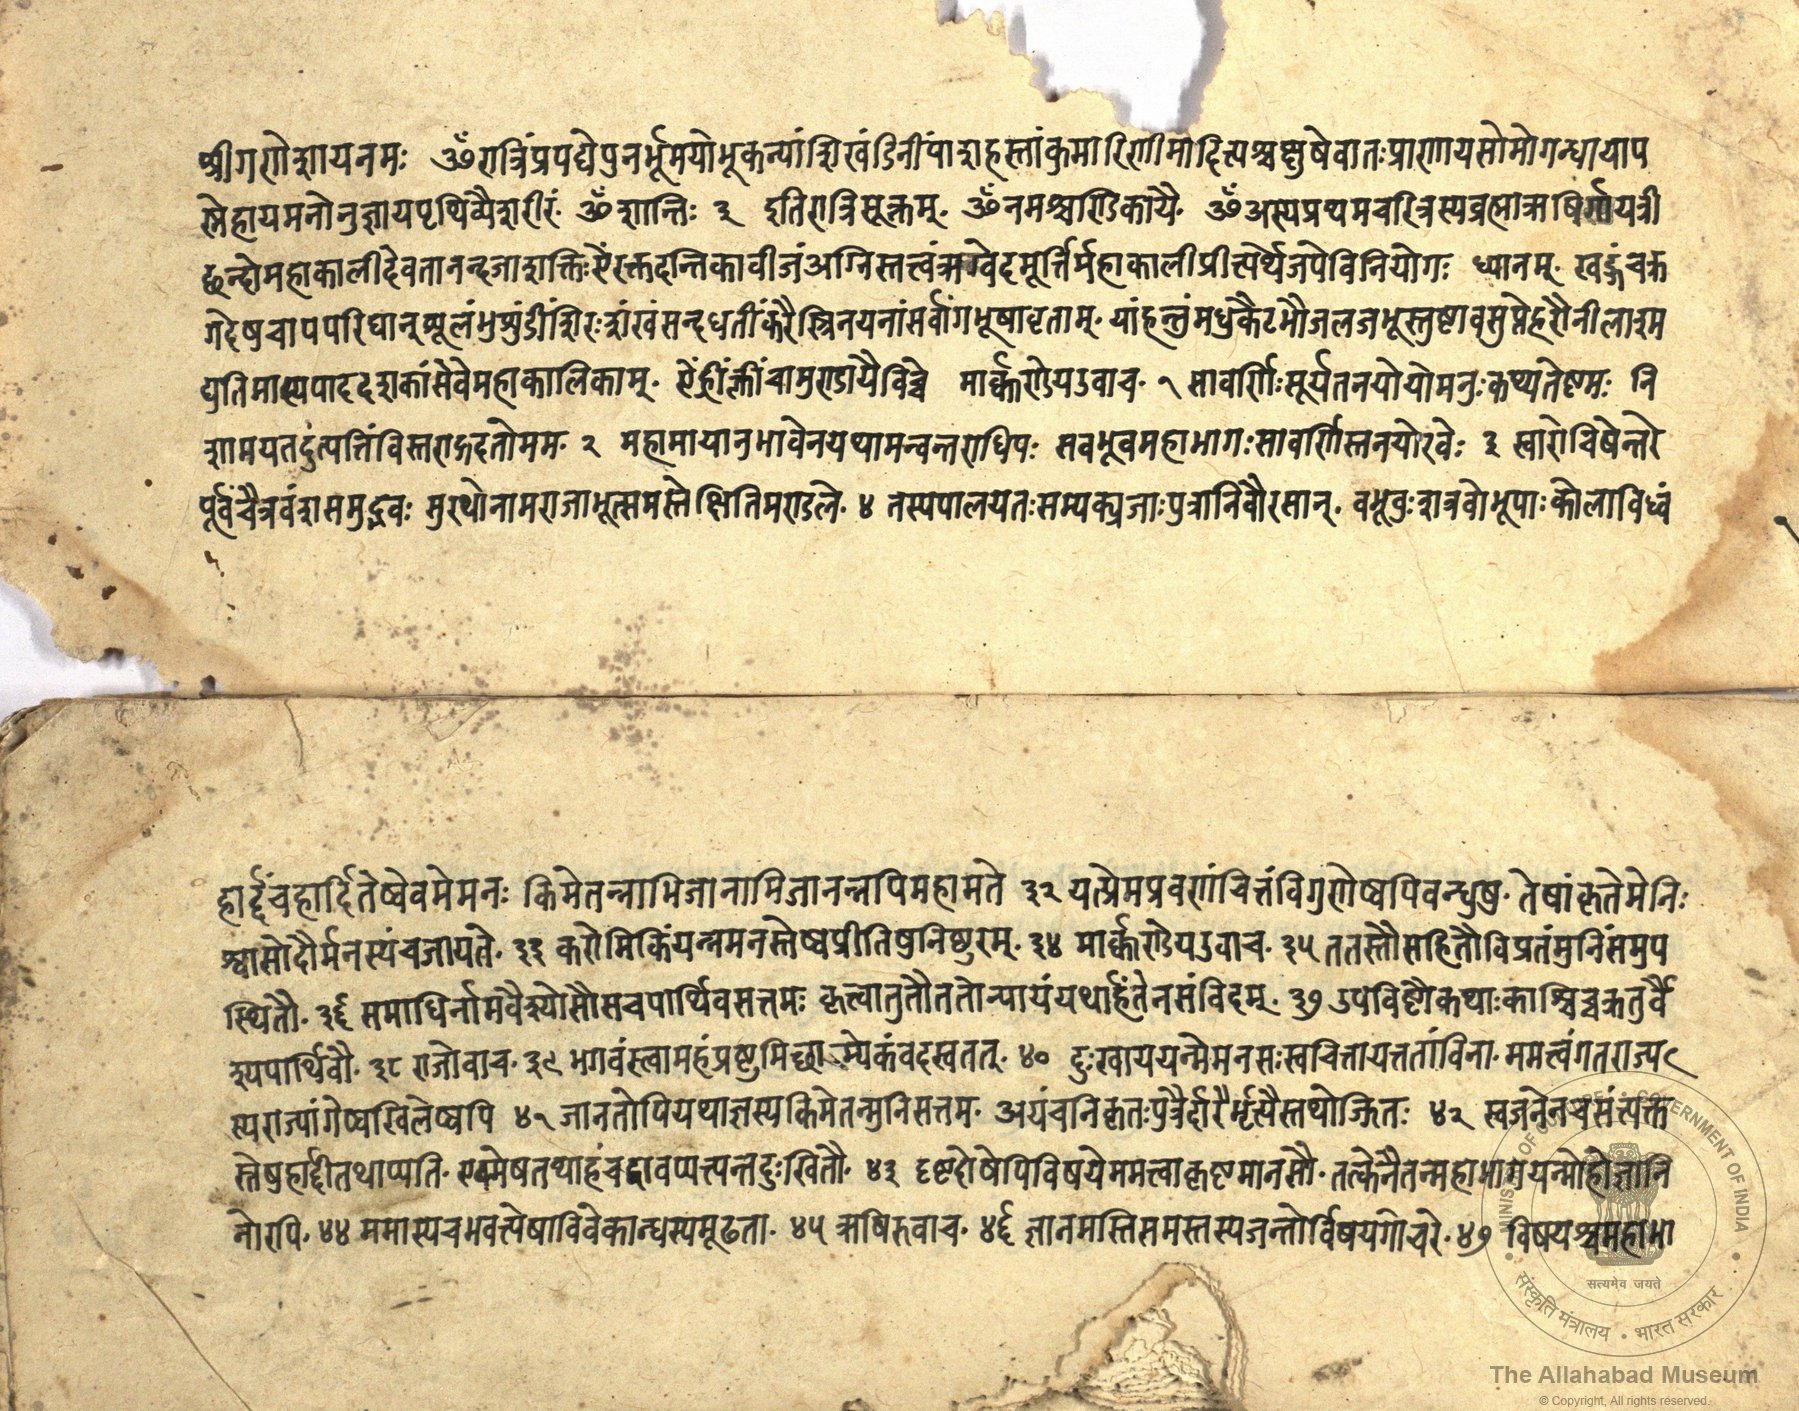 श्रीगणेशायनमः ॐरात्रिंप्रपद्येपुनर्भूमयोभूकन्यांशिखंडिनींपाशहस्तांकुमारिणीमादित्यश्चक्षुषेवातःप्राणायसोमोगन्धायाप
स्नेहायमनोनुज्ञायपृथिव्यैशरीरं॰ ॐशान्तिः ३ इतिरात्रिसूक्तम्॰ ॐनमश्चण्डिकायै॰ ॐअस्यप्रथमचरित्रस्यब्रह्माऋषिर्गायत्री
छन्दोमहाकालीदेवतानन्दजाशक्तिःऐंरक्तदन्तिकाबीजंअग्निस्तत्त्वंऋग्वेदमूर्त्तिर्महाकालीप्रीत्यर्थेजपेविनियोगः ध्यानम्॰ खङ्गंचक्र
गदेषुचापपरिघान्शूलंभुशुंडींशिरःशंखंसन्दधतींकरैस्त्रिनयनांसर्वांगभूषावृताम्॰ यांहन्तुंमधुकैटभौजलजभूस्तुष्टावसुप्तेहरौनीलाश्म
द्युतिमास्यपाददशकांसेवेमहाकालिकाम्॰ ऐंह्रींक्लींचामुण्डायैविच्चे मार्क्कण्डेयउवाच॰ १ सावर्णिःसूर्यतनयोयोमनुःकथ्यतेष्टमः नि
शामयतदुत्पत्तिंविस्तराद्गदतोमम॰ २ महामायानुभावेनयथामन्वन्तराधिपः सबभूवमहाभागःसावर्णिस्तनयोरवेः ३ स्वारोचिषेन्तरे
पूर्वंचैत्रवंशसमुद्भवः सुरथोनामराजाभूत्समस्तेक्षितिमण्डले॰ ४ तस्यपालयतःसम्यक्प्रजाःपुत्रानिवौरसान्॰ बभूवुःशत्रवोभूपाःकोलाविध्वं
हार्द्दंचहार्दितेष्वेवमेमनः किमेतन्नाभिजानामिजानन्नपिमहामते ३२ यत्प्रेमप्रवणंचित्तंविगुणेष्वपिबन्धुषु॰ तेषांकृतेमेनिः
श्वासोदौर्मनस्यंचजायते॰ ३३ करोमिकिंयन्नमनस्तेष्वप्रीतिषुनिष्ठुरम्॰ ३४ मार्क्कण्डेयउवाच॰ ३५ ततस्तौसहितौविप्रतंमुनिंसमुप
स्थितौ॰ ३६ समाधिर्नामवैश्योसौसचपार्थिवसत्तमः कृत्वातुतौततोन्यायंयथार्हंतेनसंविदम्॰ ३७ उपविष्टौकथाःकाश्चिच्चक्रतुर्वै
श्यपार्थिवौ॰ ३८ राजोवाच॰ ३९ भगवंस्त्वामहंप्रष्टुमिच्छाम्येकंवदस्वतत्॰ ४० दुःखाययन्मेमनसःस्वचित्तायत्ततांविना॰ ममत्वंगतराज्य
स्यराज्यांगेष्वखिलेष्वपि ४१ जानतोपियथाज्ञस्यकिमेतन्मुनिसत्तम॰ अयंचनिकृतःपुत्रैर्दारैर्भृत्यैस्तथोज्झितः ४२ स्वजनेनचसंत्यक्त
स्तेषुहार्द्दीतथाप्यति॰ एवमेषतथाहंचद्वावप्यत्यन्तदुःखितौ॰ ४३ दृष्टदोषेपिविषयेममत्वाकृष्टमानसौ॰ तत्केनैतन्महाभागयन्मोहोज्ञानि
नोरपि॰ ४४ ममास्यचभवत्येषाविवेकान्धस्यमूढता॰ ४५ ऋषिरुवाच॰ ४६ ज्ञानमस्तिसमस्तस्यजन्तोर्विषयगोचरे॰ ४७ विषयश्चमहाभा
MINISTRY OF CULTURE, GOVERNMENT OF INDIA
सत्यमेव जयते
संस्कृति मंत्रालय • भारत सरकार
The Allahabad Museum
© Copyright, All rights reserved.